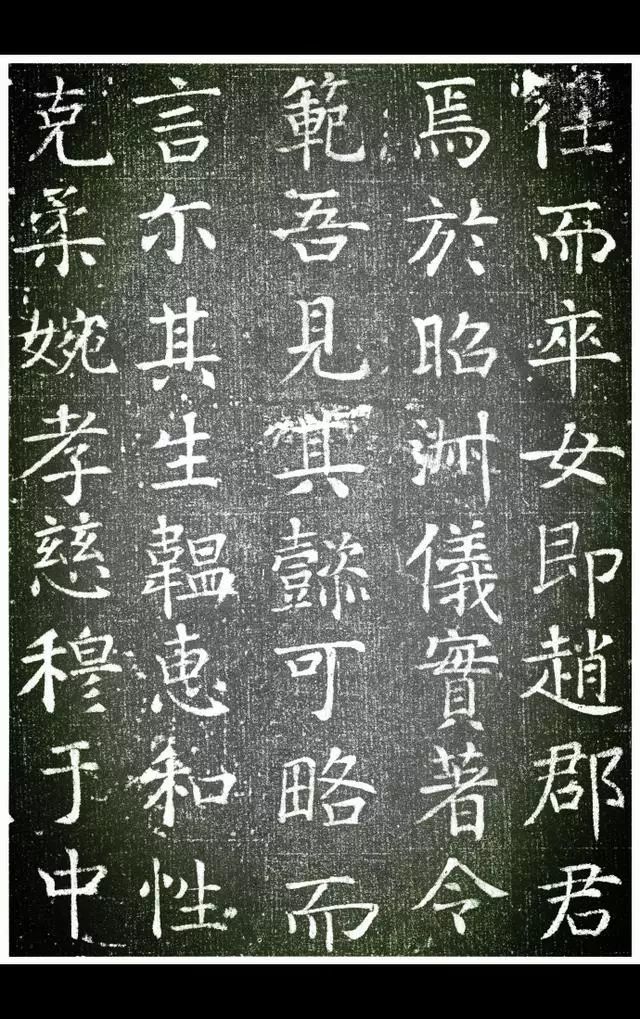 往而卒女即趙郡君
焉於昭淑儀實著令
範吾見其懿可略而
言尒其生韞恵和性
克柔婉孝慈穆于中